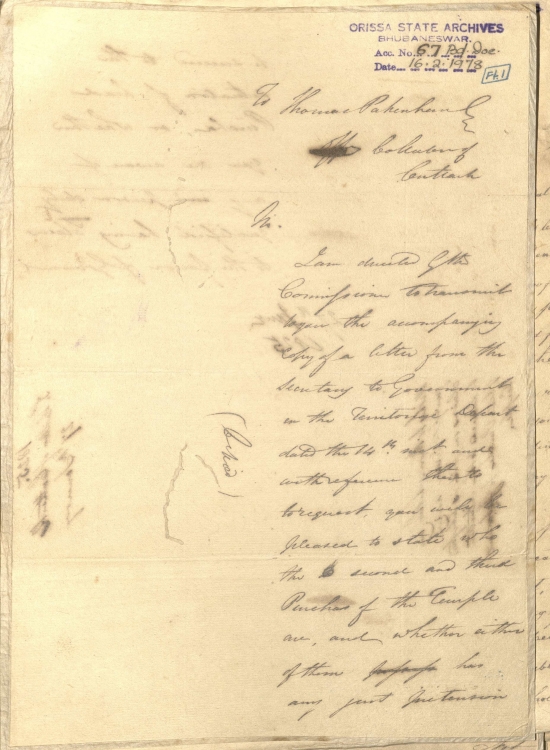 ORISSA STATE ARCHIVES
BHUBANESWAR.
Acc. No. 67 Pd. Doc.
Date 16.2.1973
Ph 1
To Thomas Pakenham Esq
Collector of
Cuttack
Sir.
I am directed by the
Commissioner to transmit
to you the accompanying
copy of a letter from the
Secretary to Government
in the Territorial Depart
dated the 14th inst and
with reference thereto
to request you will be
pleased to state who
the second and third
Purchas of the Temple
are, and whether either
of them has
any just pretension